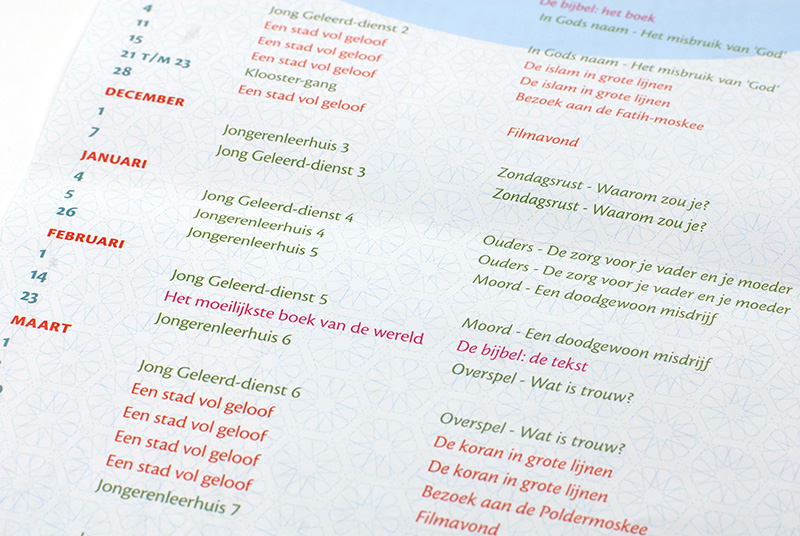 De bijbel: het boek
In Gods naam - Het misbruik van 'God'
4 Jong Geleerd-dienst 2 In Gods naam - Het misbruik van 'God'
11 Een stad vol geloof De islam in grote lijnen
15 Een stad vol geloof De islam in grote lijnen
21 T/M 23 Een stad vol geloof Bezoek aan de Fatih-moskee
Klooster-gang
28 Een stad vol geloof Filmavond
DECEMBER
1 Jongerenleerhuis 3 Zondagsrust - Waarom zou je?
7 Jong Geleerd-dienst 3 Zondagsrust - Waarom zou je?
JANUARI
4 Jong Geleerd-dienst 4 Ouders - De zorg voor je vader en je moeder
5 Jongerenleerhuis 4 Ouders - De zorg voor je vader en je moeder
26 Jongerenleerhuis 5 Moord - Een doodgewoon misdrijf
FEBRUARI
1 Jong Geleerd-dienst 5 Moord - Een doodgewoon misdrijf
14 Het moeilijkste boek van de wereld De bijbel: de tekst
23 Jongerenleerhuis 6 Overspel - Wat is trouw?
MAART
1 Jong Geleerd-dienst 6 Overspel - Wat is trouw?
Een stad vol geloof De koran in grote lijnen
Een stad vol geloof De koran in grote lijnen
Een stad vol geloof Bezoek aan de Poldermoskee
Een stad vol geloof Filmavond
Jongerenleerhuis 7